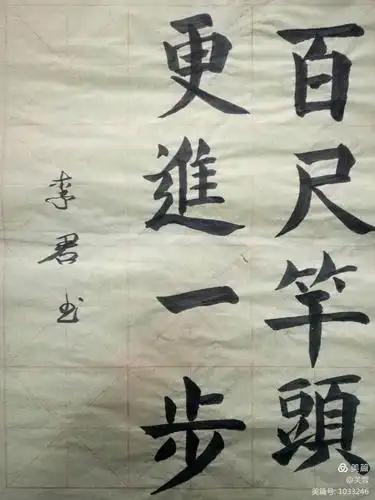 百尺竿頭
更進一步
李君书
美篇
@芙蓉
美篇号: 1033246